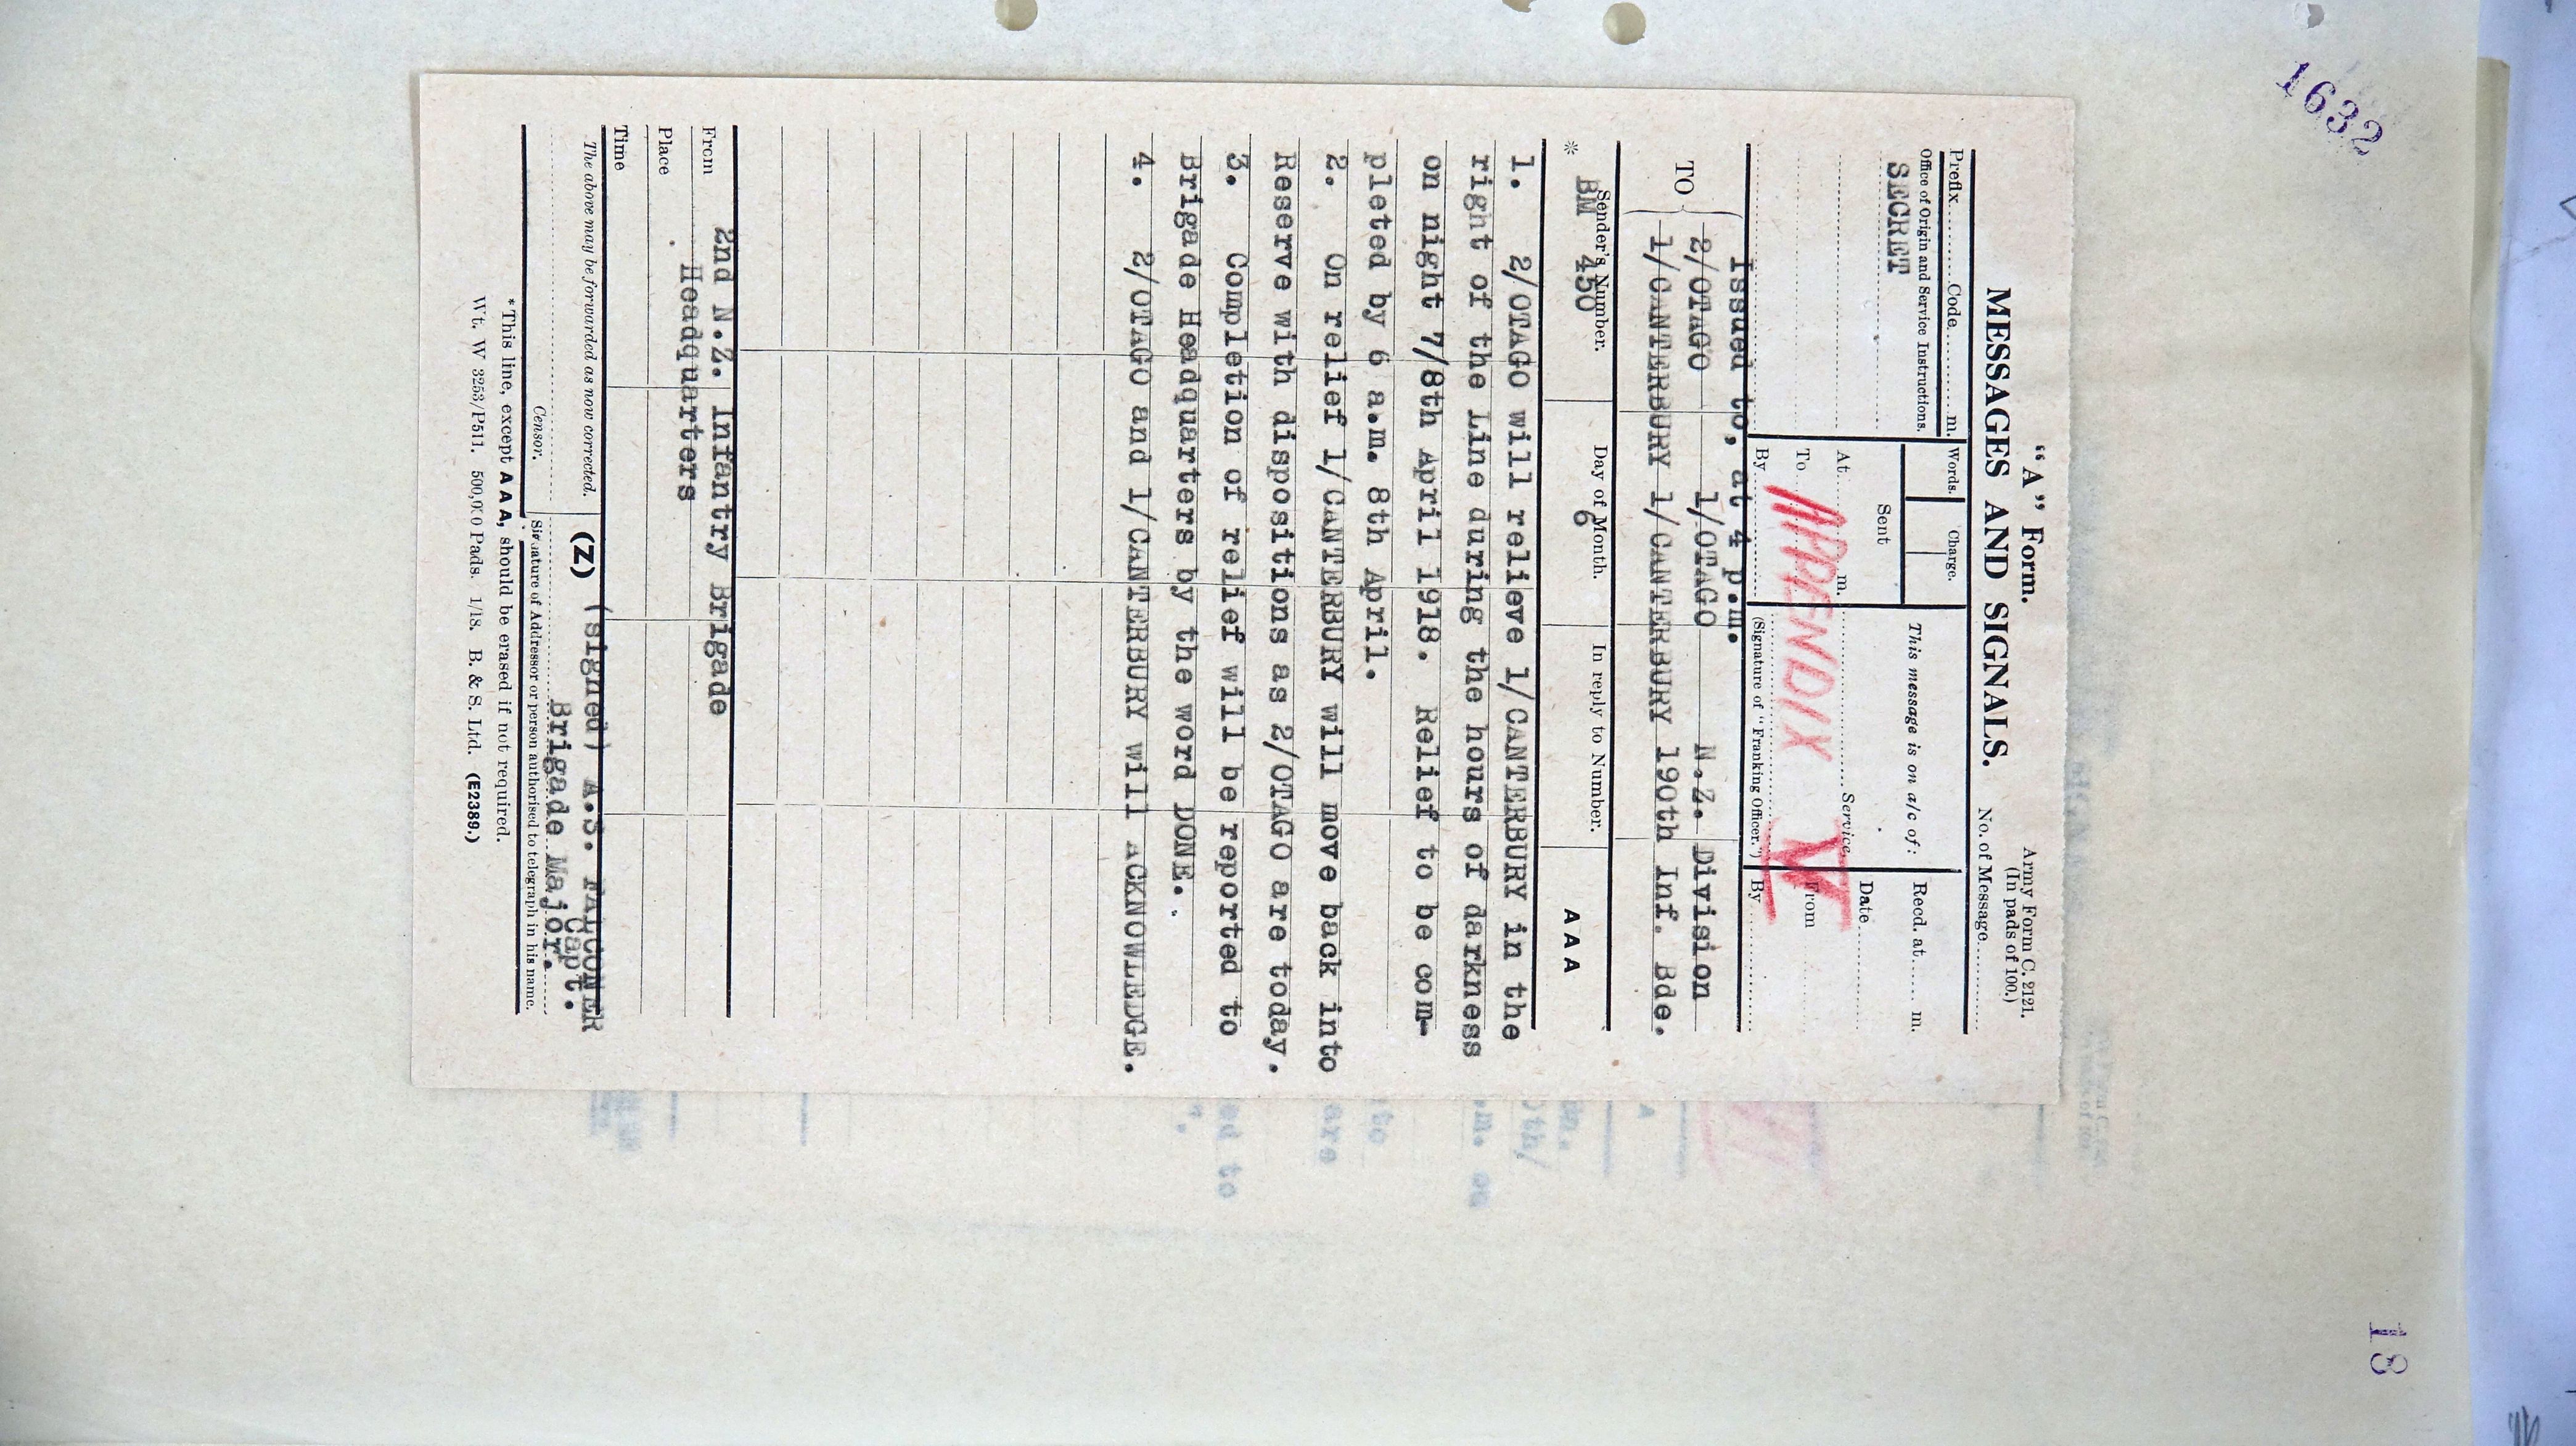 1632
"A" Form.
Army Form C. 2121.
(In pads of 100.)
MESSAGES AND SIGNALS.
No. of Message
Prefix Code m.
Words. Charge.
This message is on a/c of:
Recd. at m.
Office of Origin and Service Instructions.
SECRET
Sent
Date
At m.
Service.
To
From
By
(Signature of "Franking Officer.")
By
APPENDIX V
Issued to, at 4 p.m.
TO
2/OTAGO 1/OTAGO N.Z. Division
1/CANTERBURY 1/CANTERBURY 190th Inf. Bde.
Sender's Number. Day of Month. In reply to Number.
* BM 450 6 AAA
1. 2/OTAGO will relieve 1/CANTERBURY in the
right of the Line during the hours of darkness
on night 7/8th April 1918. Relief to be com-
pleted by 6 a.m. 8th April.
2. On relief 1/CANTERBURY will move back into
Reserve with dispositions as 2/OTAGO are today.
3. Completion of relief will be reported to
Brigade Headquarters by the word DONE.
4. 2/OTAGO and 1/CANTERBURY will ACKNOWLEDGE.
From 2nd N.Z. Infantry Brigade
Place Headquarters
Time
The above may be forwarded as now corrected.
(Z) (signed) A.S. FALCONER
Capt.
Brigade Major.
Censor.
Signature of Addressor or person authorised to telegraph in his name.
*This line, except AAA, should be erased if not required.
Wt. W 3253/P511. 500,000 Pads. 1/18. B. & S. Ltd. (E2389.)
18